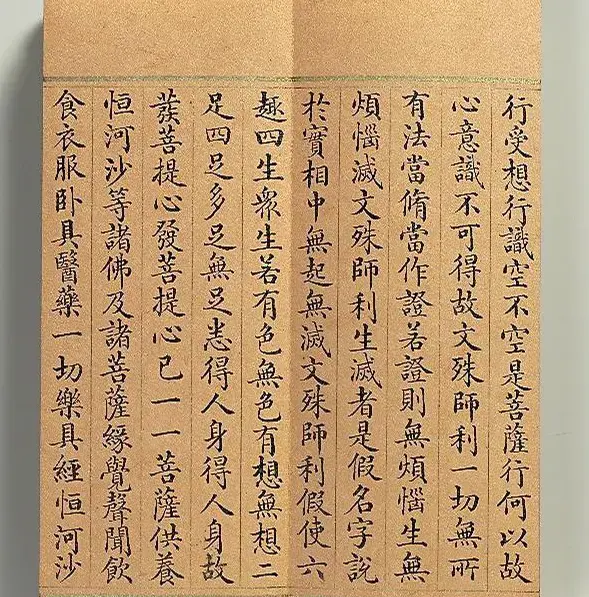 行受想行識空不空是菩薩行何以故
心意識不可得故文殊師利一切無所
有法當脩當作證若證則無煩惱生無
煩惱滅文殊師利生滅者是假名字說
於實相中無起無滅文殊師利假使六
趣四生衆生若有色無色有想無想二
足四足多足無足悉得人身得人身故
發菩提心發菩提心已一一菩薩供養
恒河沙等諸佛及諸菩薩緣覺聲聞飲
食衣服卧具醫藥一切樂具經恒河沙